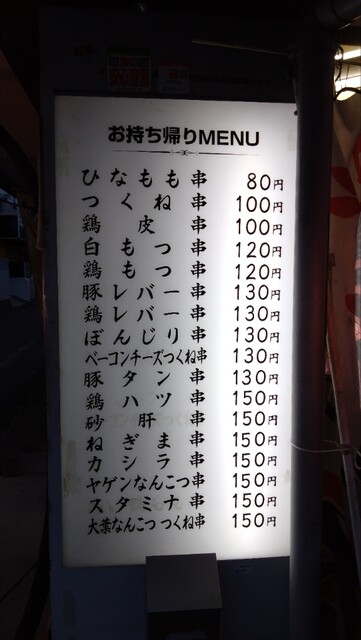 お持ち帰りMENU
ひなもも串 80円
つくね串 100円
鶏皮串 100円
白もつ串 120円
鶏もつ串 120円
豚レバー串 130円
鶏レバー串 130円
ぼんじり串 130円
ベーコンチーズつくね串 130円
豚タン串 130円
鶏ハツ串 150円
砂肝串 150円
ねぎま串 150円
カシラ串 150円
ヤゲンなんこつ串 150円
スタミナ串 150円
大葉なんこつつくね串 150円